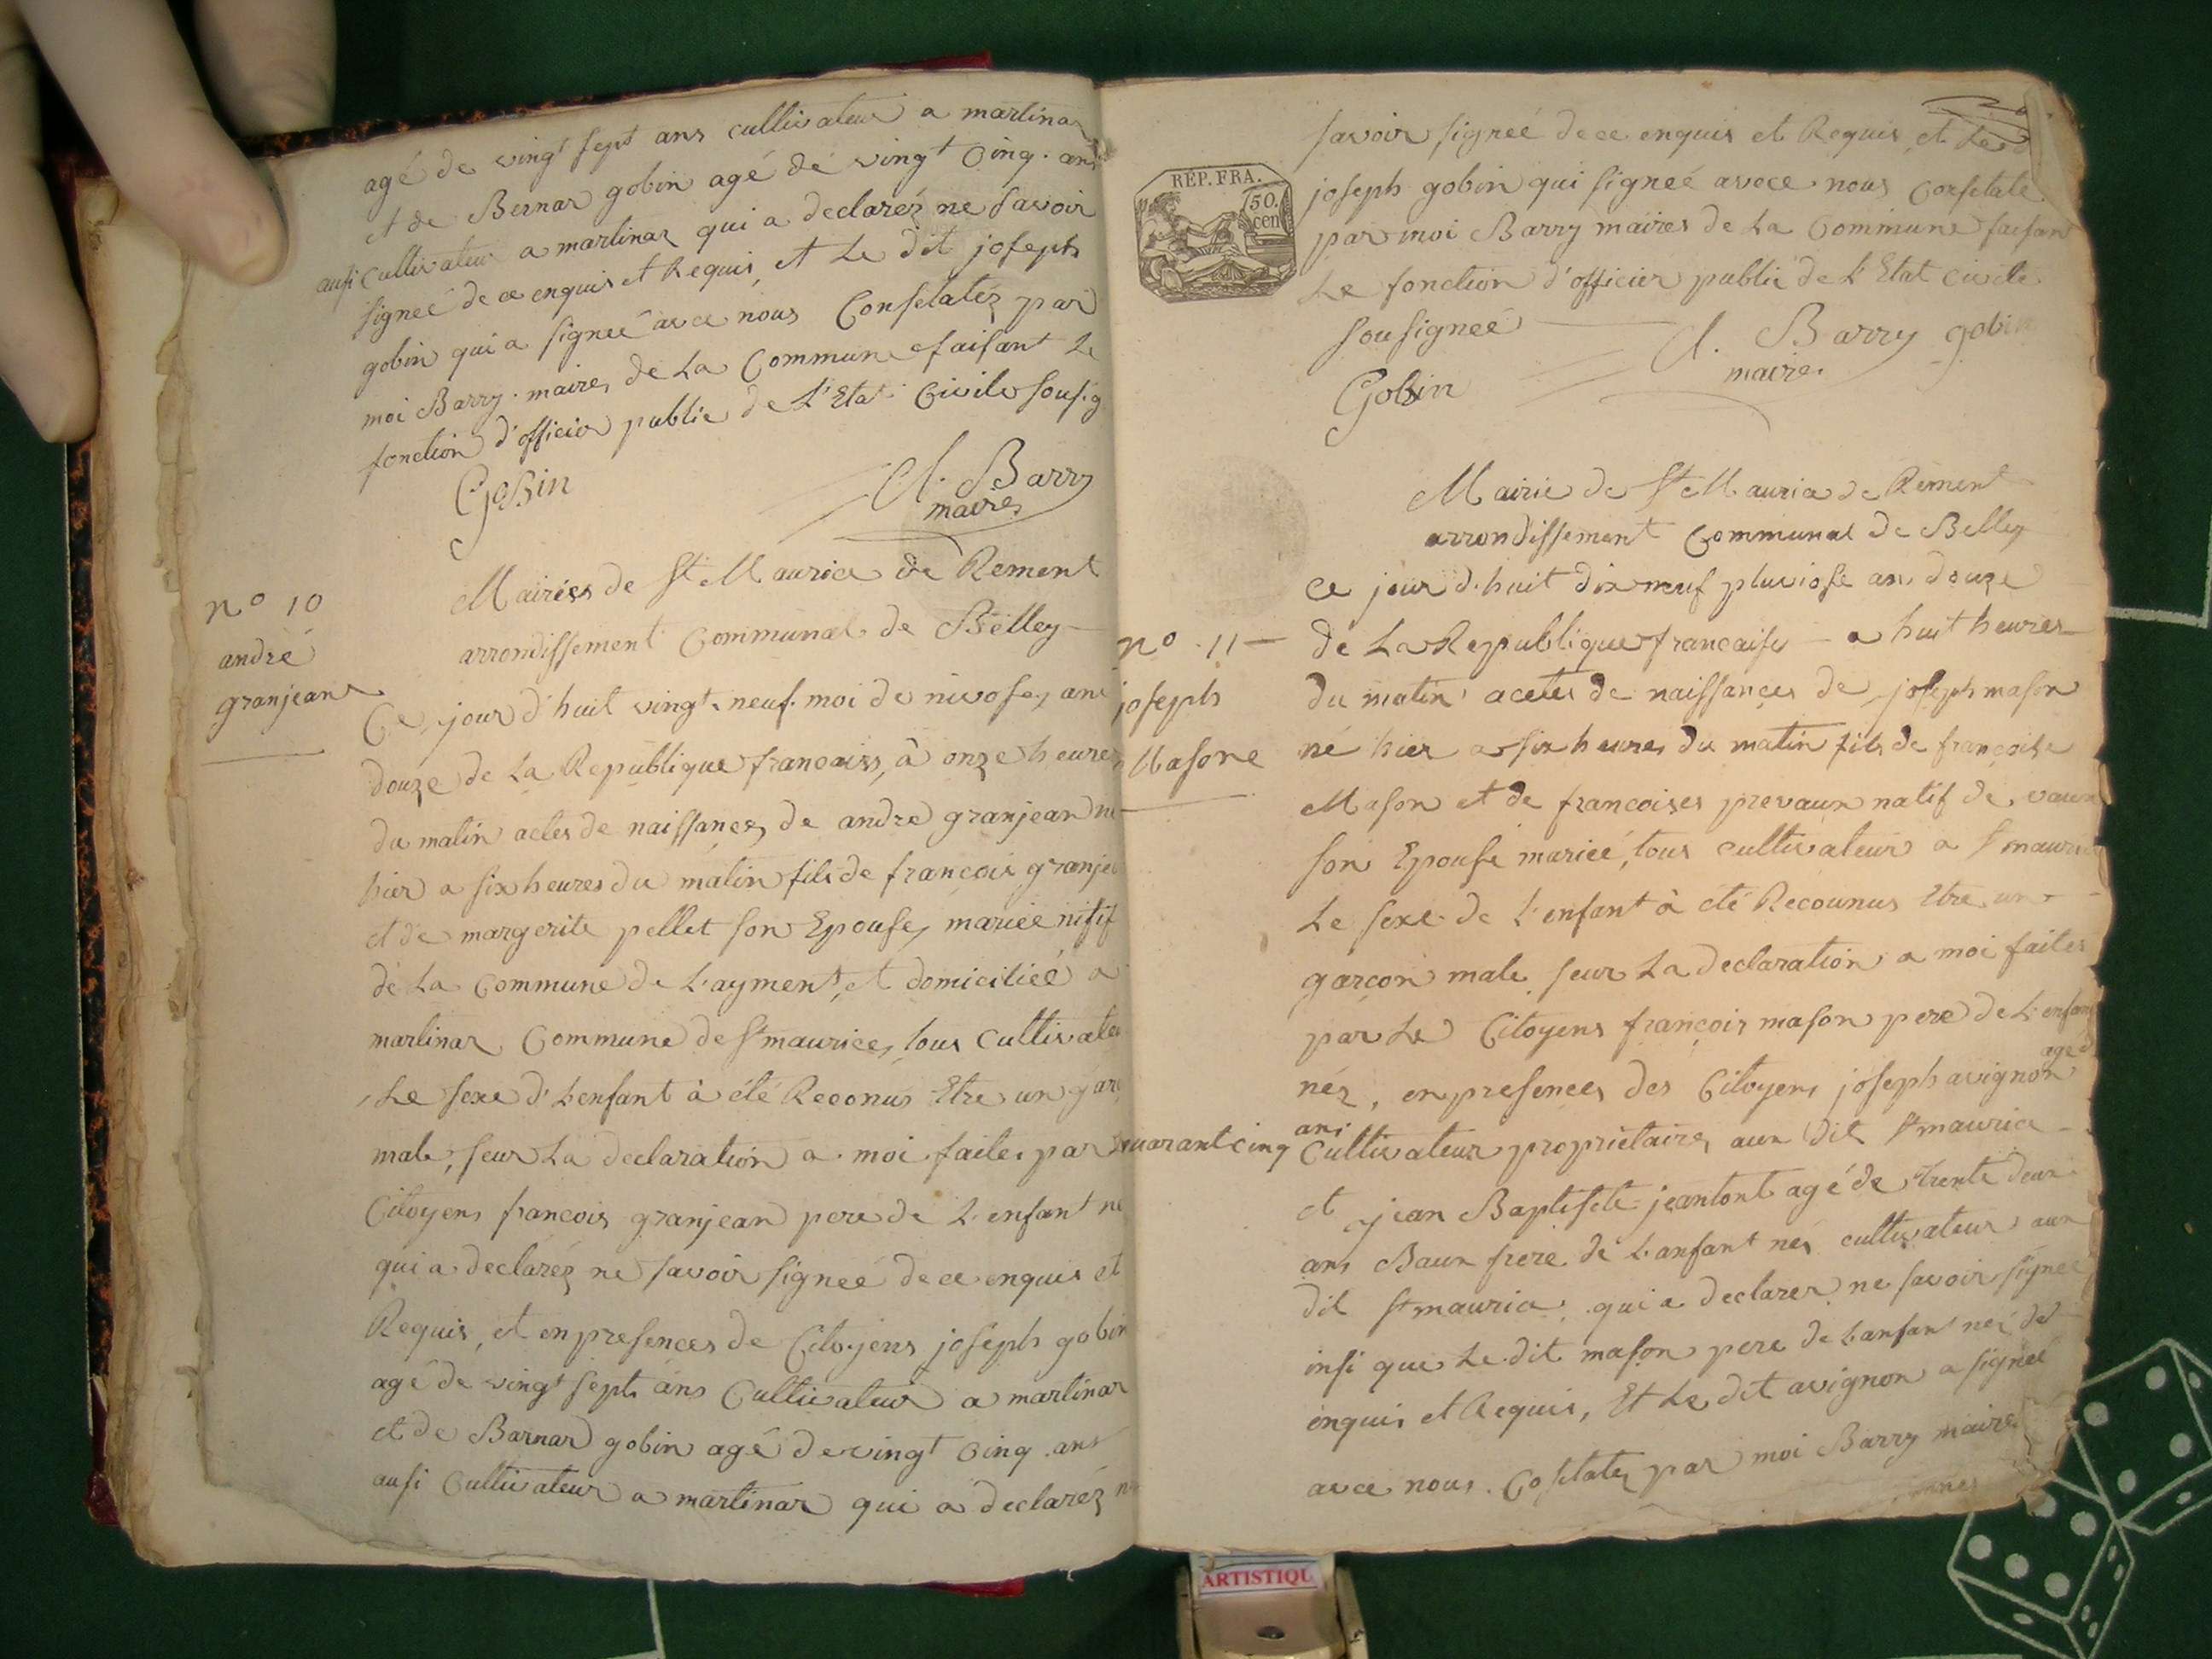 agé de vingt sept ans cultivateur a martinaz
et de Bernar gobin agé de vingt cinq. ans
ausi cultivateur a martinaz qui a declaréz ne savoir
signeé de ce enquis et Requis, et Le dit joseph
gobin qui a signeé avce nous Constatéz par
moi Barry. maires de La Commune faisant Le
fonction d'officier publie de L'Etat Civile sousig
Gobin
A. Barry
maires
Mairies de St Maurice de Rement
arrondissement Communal de Belley
no 10
andré
granjeans
Ce jour d'huit vingt neuf. moi de nivose, ans
douze de La Republique francaiss, à onze heures
du matin actes de naissances de andre granjean ne
hier a six heures du matin fils de françois granje
et de margerite pellet son Epouse, mariée nitif
de La Commune de L'ayment, et domiciliéé a
martinaz Commune de St maurice, tous Cultivate
Le sexe d'Lenfant à été Reconus Etre un gar
male, seur La declaration a moi faite par
Citoyens francois granjean pere de L'enfant ne
qui a declaréz ne savoir signeé de ce enquis et
Requis, et en presences de Citoyens joseph gobin
agé de vingt sept ans Cultivateur a martinaz
et de Barnar gobin agé de vingt cinq ans
ausi Cultivateur a martinaz qui a declaréz ne
savoir signeé de ce enquis et Requis et Le
REP. FRA.
50.
cen
joseph gobin qui signeé avoce nous Constate
par moi Barry maires de La Commune faisan
Le fonction d'officier publie de L'Etat civile
sousigneé
A. Barry gobin
maire.
Gobin
Mairie de St Maurice de Rement
arrondissement Communal de Belley
ce jour d'huit dix neuf pluviose an douze
no 11
de La Republique francaise a huit heures
joseph
du matin actes de naissances de joseph mason
Masone
né hier a six heures du matin fils de françoise
Mason et de francoises prevaux natif de vaux
son Epouse marieé, tous cultivateur a St maurice
Le sexe de L'enfant à été Recounus Etre un
garçon male seur La declaration a moi faites
par Le Citoyens françois mason pere de L'enfans
néz, en presences des Citoyens joseph avignon agé d
quarant cinq ans Cultivateur proprietaires aux dit St maurice
et jean Baptiste jeantont agé de trente deux
ans Baux frere de L'anfant nés cultivateur aux
dit St maurice qui a declarer ne savoir signeé
insi que Le dit mason pere de L'anfant neé de
enquis et Requis, Et Le dit avignon a signeé
avce nous. Costatez par moi Barry maires
ARTISTIQU